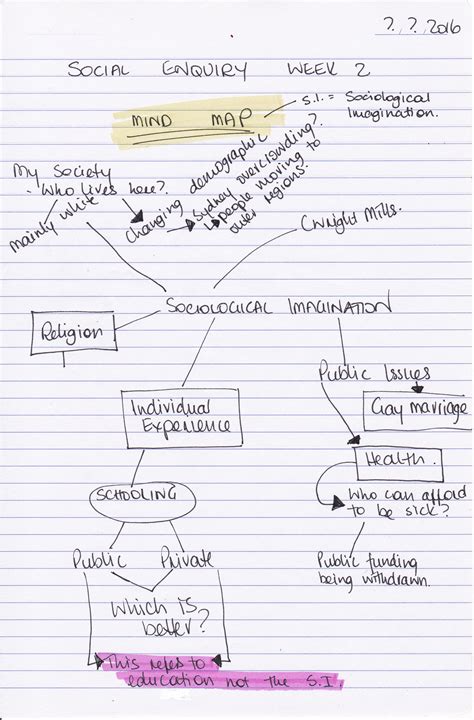 ?. ?. 2016
SOCIAL ENQUIRY WEEK 2
MIND MAP
S.I. = Sociological
Imagination.
My Society
Who lives here?.
mainly white
Changing demographic
Sydney overcrowding?.
people moving to
outer regions.
CWright Mills.
SOCIOLOGICAL IMAGINATION
Religion
Individual
Experience
SCHOOLING
Public Private
Which is
better?
This refers to
education not the S.I.
Public Issues
Gay marriage
Health.
Who can afford
to be sick?
Public funding
being withdrawn.